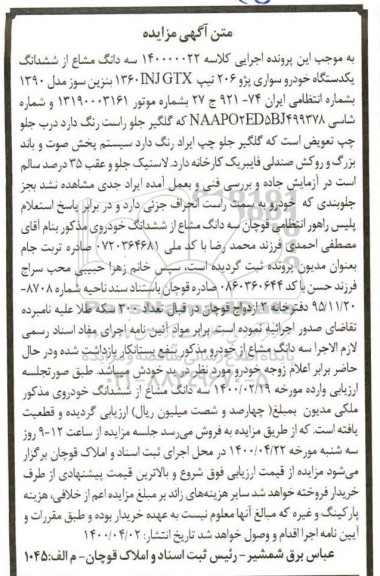 متن آگهی مزایده
به موجب این پرونده اجرایی کلاسه ۱۴۰۰۰۰۰۲۲ سه دانگ مشاع از ششدانگ
یکدستگاه خودرو سواری پژو ۲۰۶ تیپ ۱۳۶۰INJ GTX بنزین سوز مدل ۱۳۹۰
بشماره انتظامی ایران ۷۴- ۹۲۱ ج ۲۷ بشماره موتور ۱۳۱۹۰۰۰۳۱۶۱ و شماره
شاسی NAAP۰۲ED۵BJ۴۹۹۳۷۸ که گلگیر جلو راست رنگ دارد درب جلو
چپ تعویض است که گلگیر جلو چپ ایراد رنگ دارد سیستم پخش صوت و باند
بزرگ و روکش صندلی فابریک کارخانه دارد. لاستیک جلو و عقب ۳۵ درصد سالم
است در آزمایش جاده و بررسی فنی و بعمل آمده ایراد جدی مشاهده نشد بجز
جلوبندی که خودرو به سمت راست انحراف جزئی دارد و در برابر پاسخ استعلام
پلیس راهور انتظامی قوچان سه دانگ مشاع از ششدانگ خودروی مذکور بنام آقای
مصطفی احمدی فرزند محمد رضا با کد ملی ۰۷۲۰۳۶۴۶۸۱ صادره تربت جام
بعنوان مدیون پرونده ثبت گردیده است، سپس خانم زهرا حبیبی محب سراج
فرزند حسن با کد ۰۸۶۰۳۶۰۶۴۴ صادره قوچان باستناد سند ناحیه شماره ۸۷۰۸-
۹۵/۱۱/۲۰ دفترخانه ۳ ازدواج قوچان در قبال تعداد ۳۰۰ سکه طلا علیه نامبرده
تقاضای صدور اجرائیه نموده است برابر مواد آئین نامه اجرای مفاد اسناد رسمی
لازم الاجرا سه دانگ مشاع از خودرو مذکور بنفع بستانکار بازداشت شده ودر حال
حاضر برابر اعلام زوجه خودرو مورد نظر در ید خودش میباشد. طبق صورتجلسه
ارزیابی وارده مورخه ۱۴۰۰/۰۲/۱۹ سه دانگ مشاع از ششدانگ خودروی مذکور
ملکی مدیون بمبلغ( چهارصد و شصت میلیون ریال) ارزیابی گردیده و قطعیت
یافته است. که از طریق مزایده به فروش می‌رسد جلسه مزایده از ساعت ۱۲-۹ روز
سه شنبه مورخه ۱۴۰۰/۰۴/۲۲ در محل اجرای ثبت اسناد و املاک قوچان برگزار
می‌شود مزایده از قیمت ارزیابی فوق شروع و بالاترین قیمت پیشنهادی از طرف
خریدار فروخته خواهد شد سایر هزینه‌های زائد بر مبلغ مزایده اعم از خلافی، هزینه
پارکینگ و غیره که مبالغ آنها معلوم نیست به عهده خریدار بوده و طبق مقررات و
آیین نامه اجرا اقدام و وصول خواهد شد تاریخ انتشار: ۱۴۰۰/۰۴/۰۲
عباس برق شمشیر - رئیس ثبت اسناد و املاک قوچان- م الف:۱۰۴۵